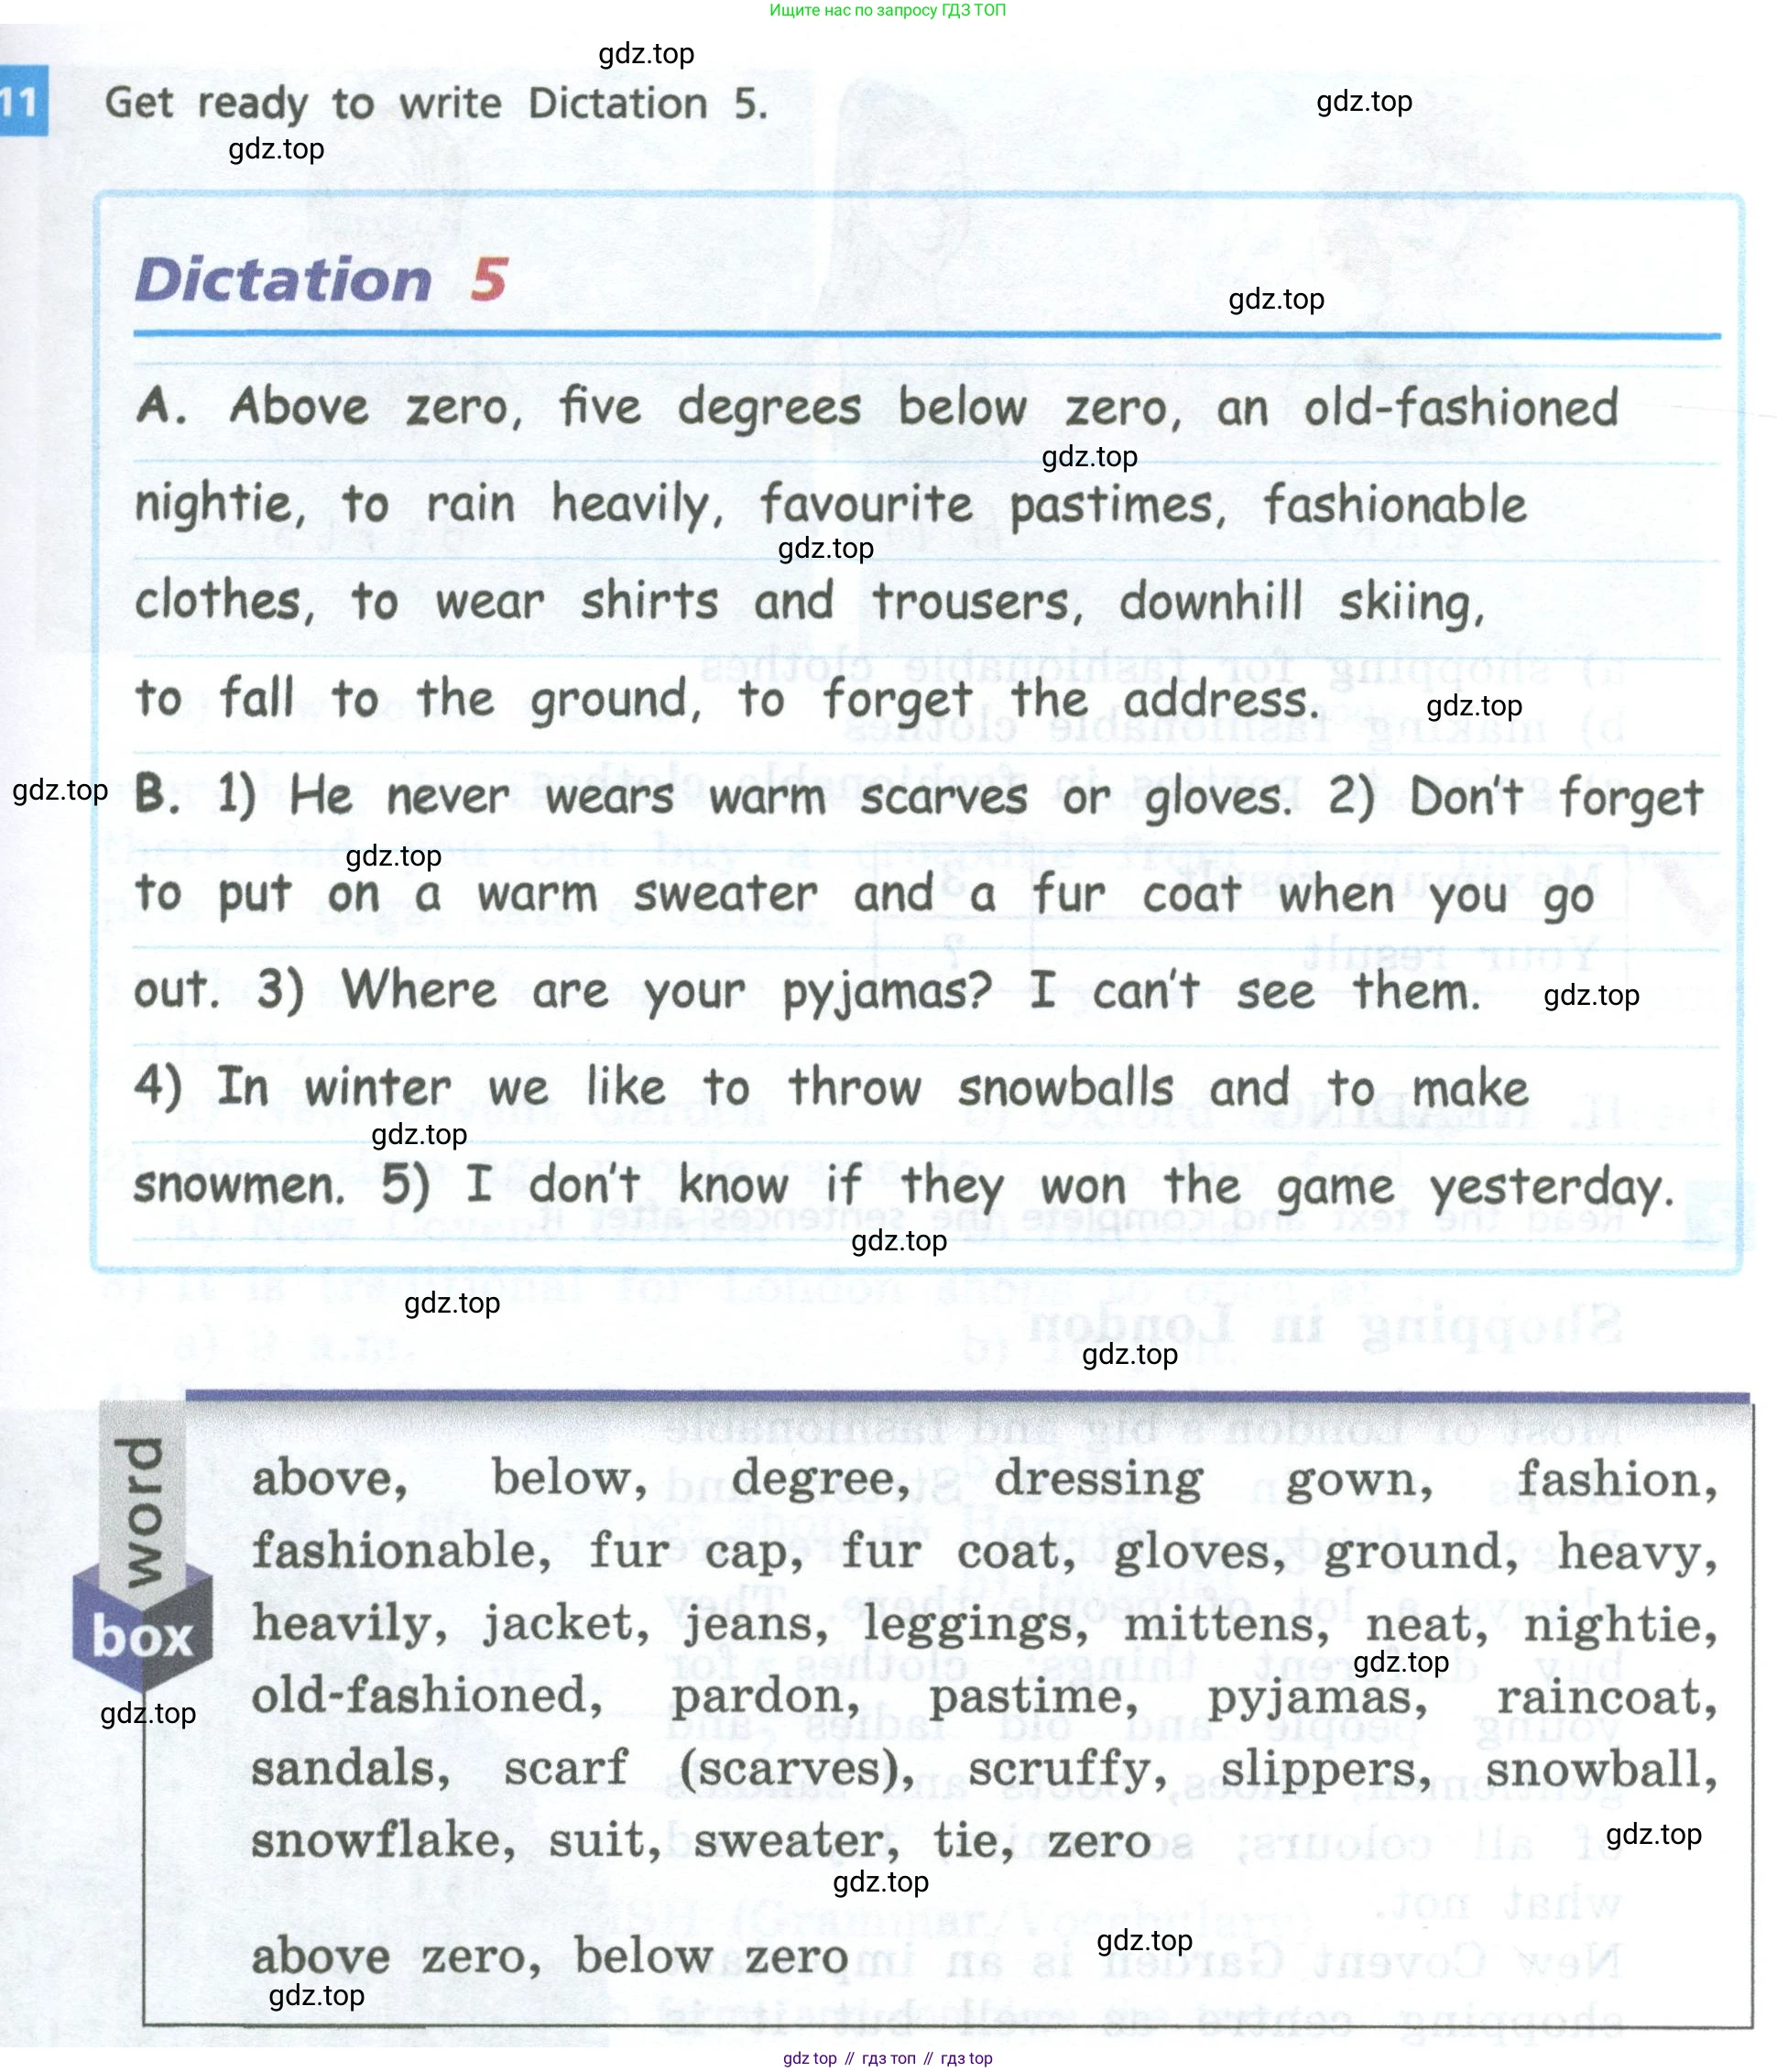 Ищите нас по запросу ГДЗ ТОП
gdz.top
11 Get ready to write Dictation 5.
gdz.top
gdz.top
Dictation 5
gdz.top
A. Above zero, five degrees below zero, an old-fashioned
gdz.top
nightie, to rain heavily, favourite pastimes, fashionable
gdz.top
clothes, to wear shirts and trousers, downhill skiing,
to fall to the ground, to forget the address.
gdz.top
gdz.top
B. 1) He never wears warm scarves or gloves. 2) Don't forget
gdz.top
to put on a warm sweater and a fur coat when you go
out. 3) Where are your pyjamas? I can't see them.
gdz.top
4) In winter we like to throw snowballs and to make
gdz.top
snowmen. 5) I don't know if they won the game yesterday.
gdz.top
gdz.top
gdz.top
word
box
above, below, degree, dressing gown, fashion,
fashionable, fur cap, fur coat, gloves, ground, heavy,
heavily, jacket, jeans, leggings, mittens, neat, nightie,
gdz.top
old-fashioned, pardon, pastime, pyjamas, raincoat,
gdz.top
sandals, scarf (scarves), scruffy, slippers, snowball,
snowflake, suit, sweater, tie, zero
gdz.top
gdz.top
above zero, below zero
gdz.top
gdz.top
gdz top // гдз топ // гдз top